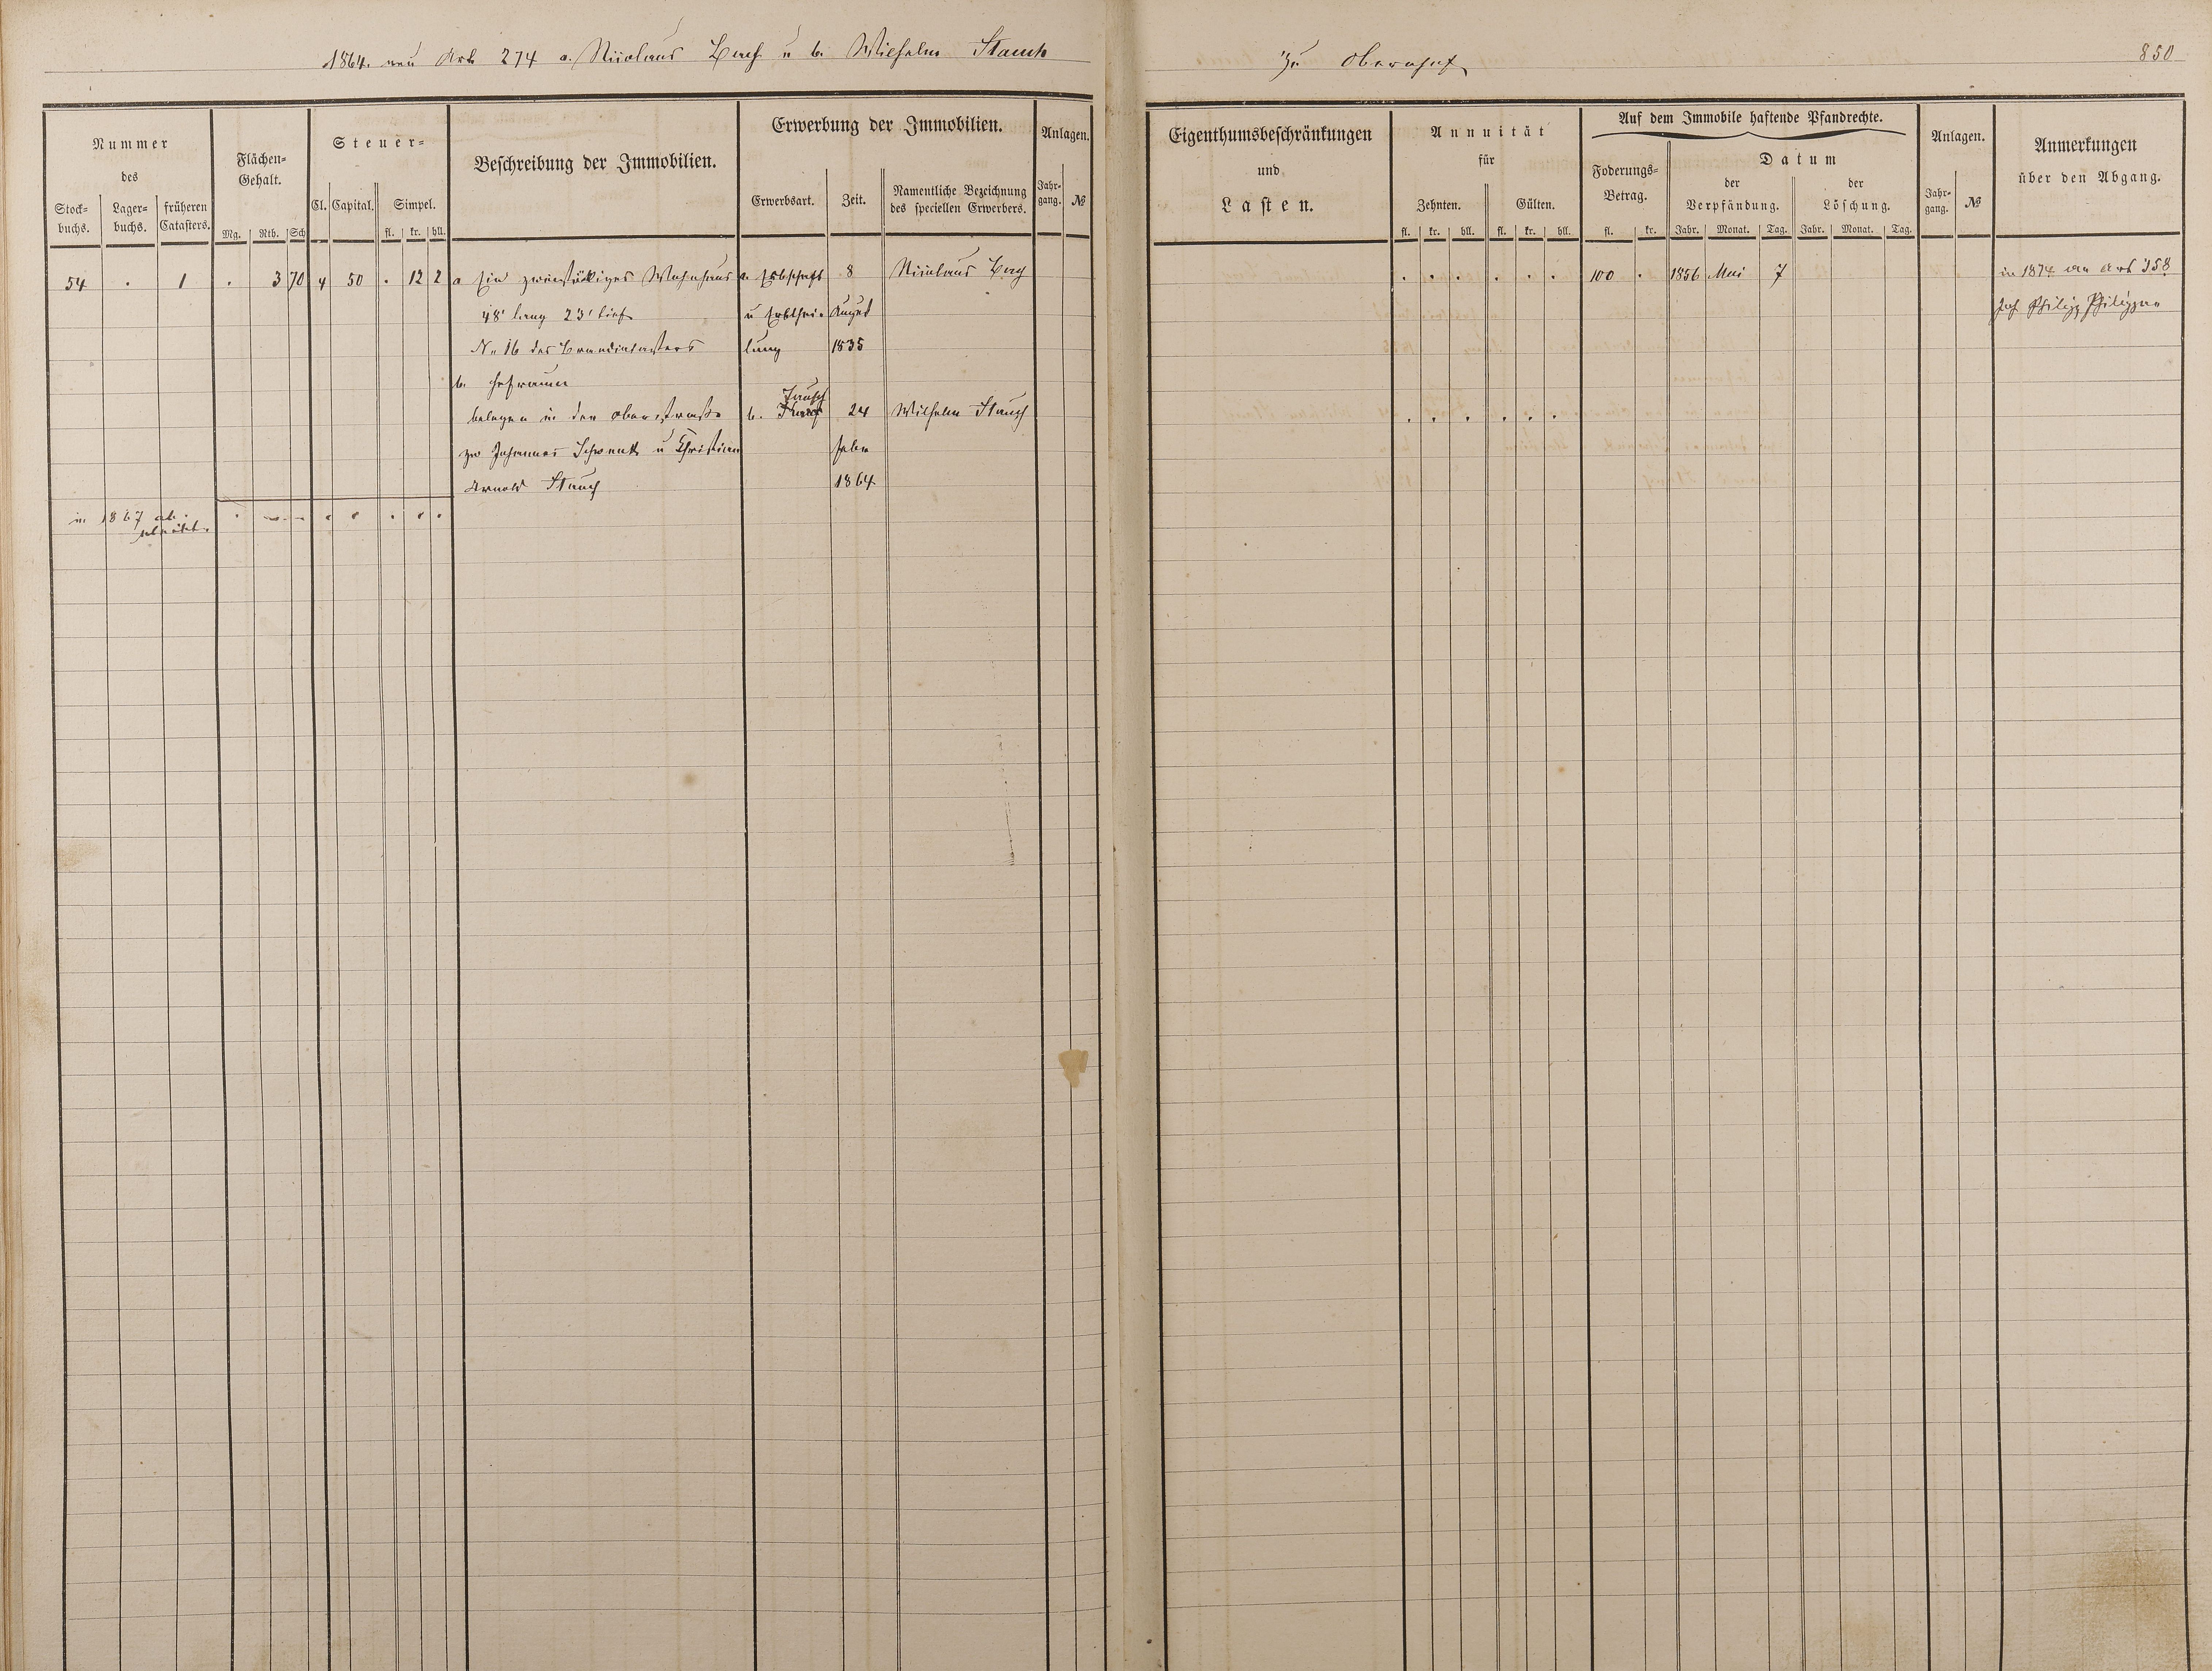 1864. neu Art 274 a. Nicolaus Bach u b. Wilhelm Stauch
Zu Obernhof
850
Nummer
des
Stock=
buchs.
Lager=
buchs.
früheren
Catasters.
Flächen=
Gehalt.
Mg. Rth. Sch
Steuer=
Cl. Capital. Simpel.
fl. kr. hll.
Beschreibung der Immobilien.
Erwerbung der Immobilien.
Erwerbsart. Zeit.
Namentliche Bezeichnung
des speciellen Erwerbers.
Anlagen.
Jahr-
gang. №
Eigenthumsbeschränkungen
und
Lasten.
Annuität
für
Zehnten. Gülten.
fl. kr. hll. fl. kr. hll.
Auf dem Immobile haftende Pfandrechte.
Foderungs=
Betrag.
fl. kr.
Datum
der
Verpfändung.
Jahr. Monat. Tag.
der
Löschung.
Jahr. Monat. Tag.
Anlagen.
Jahr-
gang. №
Anmerkungen
über den Abgang.
54 . 1 . 3 70 4 50 . 12 2 a Ein zweistöckiges Wohnhaus a. Erbschaft 8 Nicolaus Bach . . . . . . 100 . 1856 Mai 7 in 1874 an Art 358
48' lang 23' tief u Erbthei= August Joh Philipp
No 16 des Brandcatasters lung 1835
b. Hofraum
belegen in der Oberstraße b. Tausch 24 Wilhelm Stauch . . . . . .
zw Johannes Schwenk u Christian Febr
Arnold Stauch 1864
in 1867 ab.